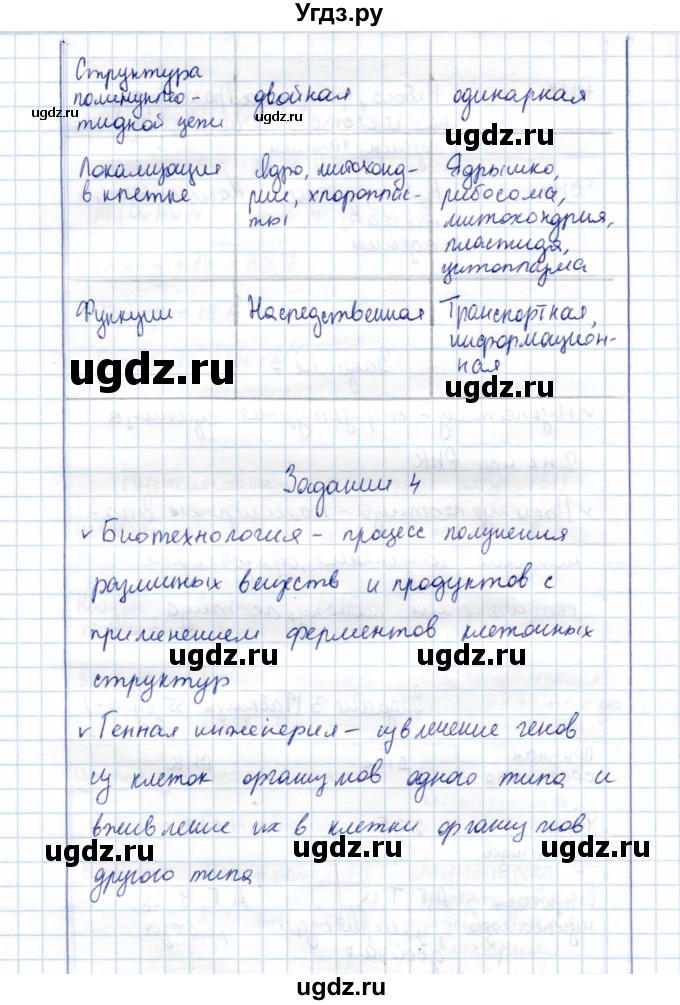 Угдз.ру
Структура
полинуклео-
тидной цепи
двойная
одинарная
Локализация
в клетке
Ядро, митохонд-
рии, хлороплас-
ты
Ядрышко,
рибосома,
митохондрия,
пластида,
цитоплазма
Функции
Наследственная
Транспортная,
информацион-
ная
Задание 4
v Биотехнология – процесс получения
различных веществ и продуктов с
применением ферментов клеточных
структур
v Генная инженерия – извлечение генов
из клеток организмов одного типа и
вживление их в клетки организмов
другого типа.
ugdz.ru
ugdz.ru
ugdz.ru
ugdz.ru
ugdz.ru
ugdz.ru
ugdz.ru
ugdz.ru
ugdz.ru
ugdz.ru
ugdz.ru
ugdz.ru